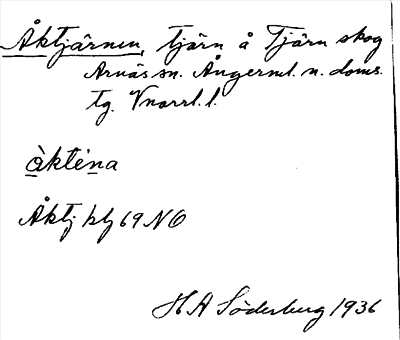 Åktjärnen, tjärn å Tjärn skog
Arnäs sn. Ångerml. n. doms.
tg. Vnorrl. l.
àkténa
Åktj htj 69 NO
H A Söderberg 1936